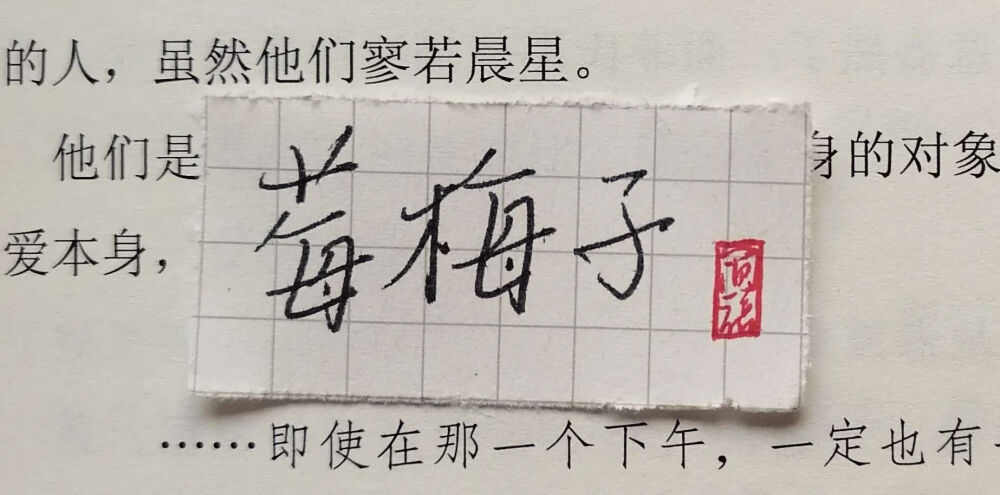 的人，虽然他们寥若晨星。
他们是
身的对象
爱本身，
莓梅子
……即使在那一个下午，一定也有